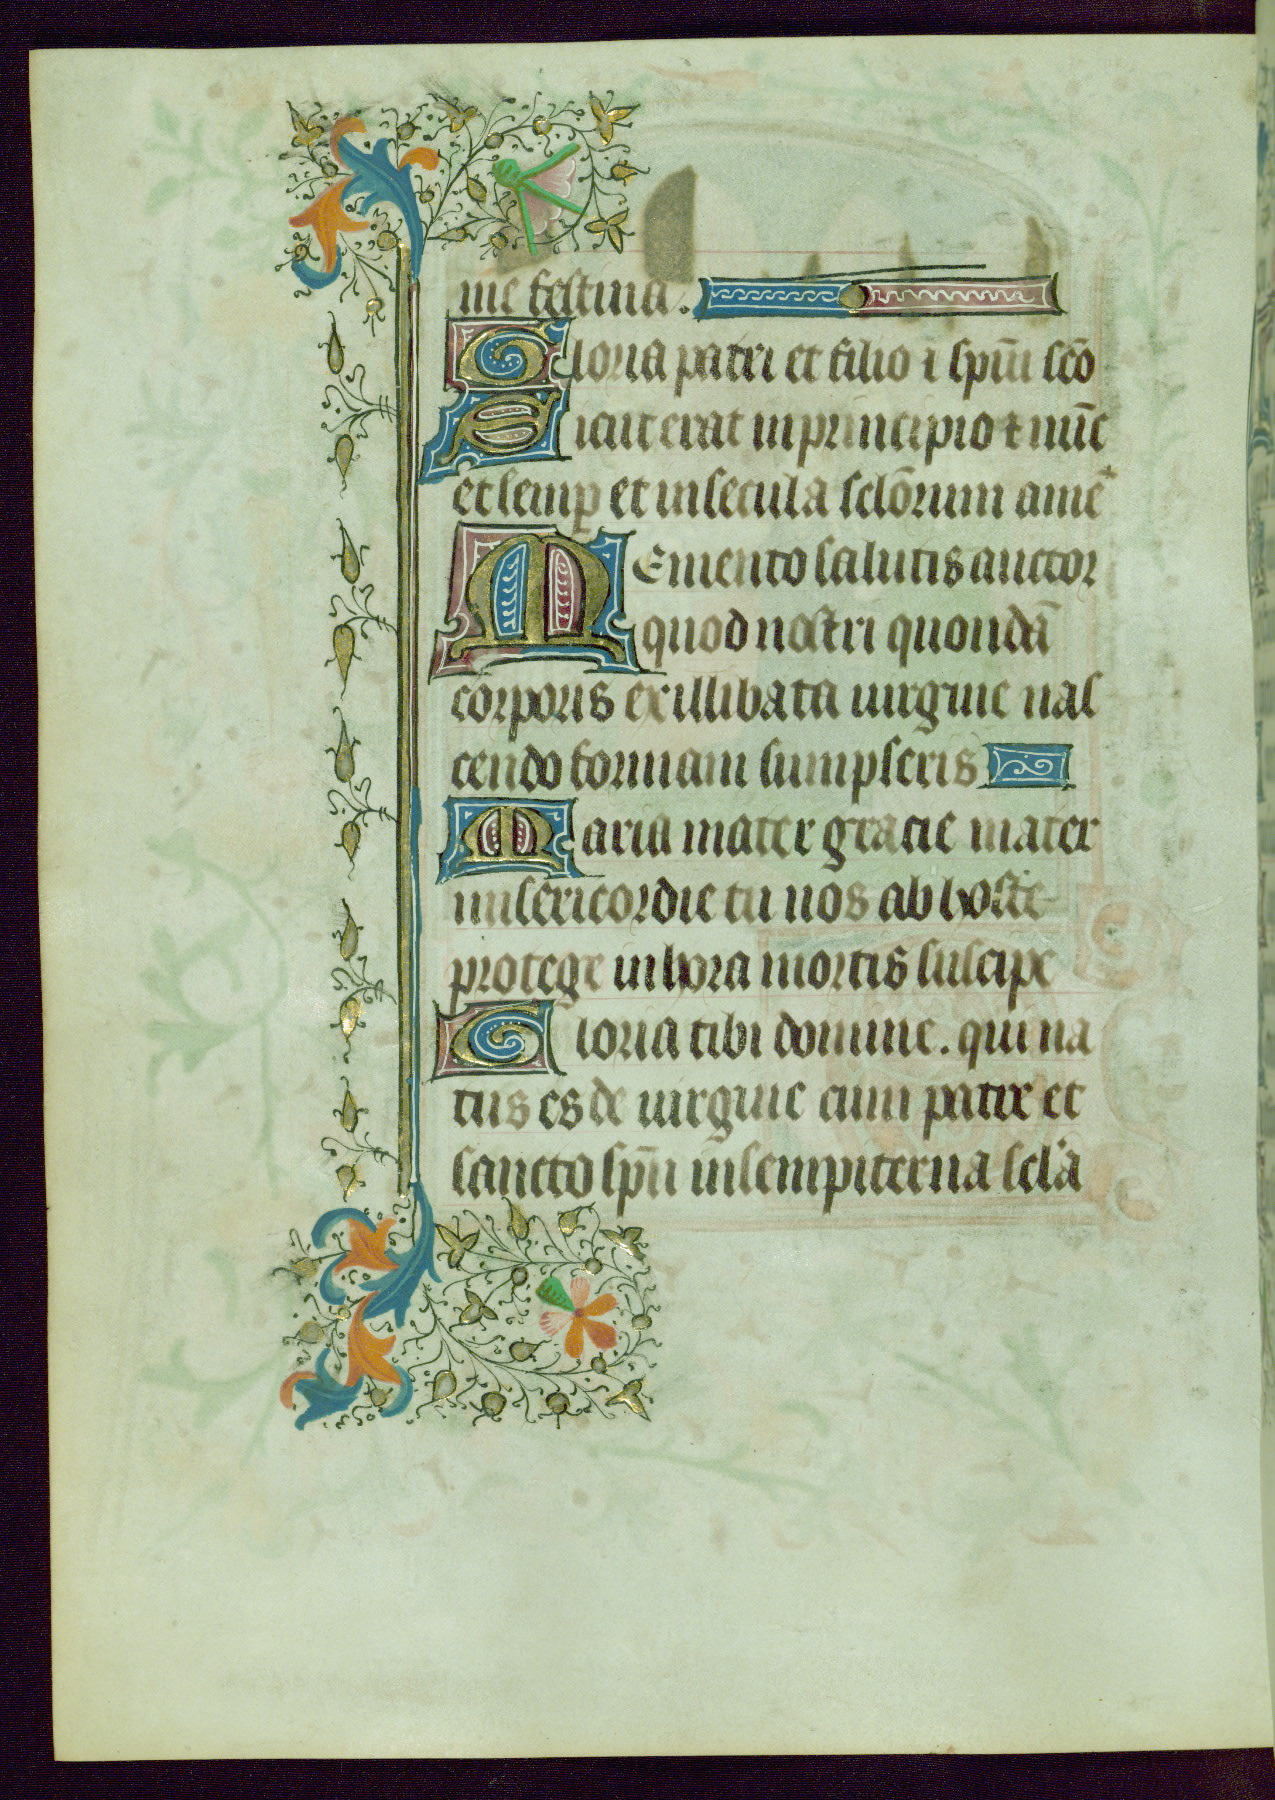 me festina.
Gloria patri et filio ⁊ spũi scõ
Sicut erat in principio ⁊ nũc
et semp et in secula sclõrum amẽ
Memento salutis auctor
quod nostri quondã
corporis ex illibata uirgine nas
cendo formam sumpseris
Maria mater gracie mater
misericordie tu nos ab hoste
protege in hora mortis suscipe
Gloria tibi domine. qui na
tus es de uirgine cum patre et
sancto spũ in sempiterna scła